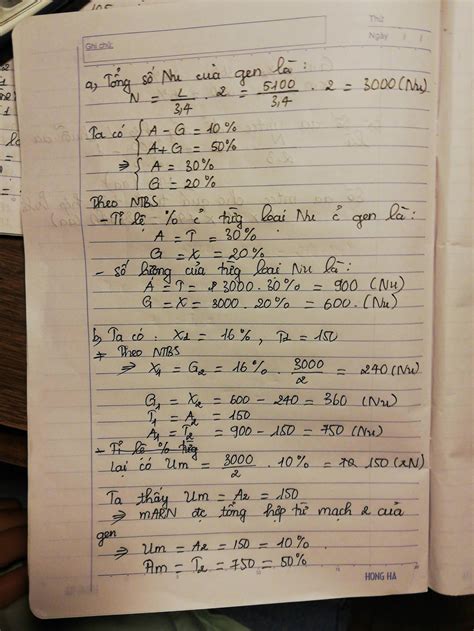 Thứ
Ghi chú:
Ngày
a, Tổng số Nu của gen là:
N = L/3,4 . 2 = 5100/3,4 . 2 = 3000 (Nu)
Ta có { A - G = 10%
A + G = 50%
⇒ { A = 30%
G = 20%
Theo NTBS
- Tỉ lệ % ở từg loại Nu ở gen là:
A = T = 30%
G = X = 20%
- số lượng của từg loại Nu là:
A = T = 3000 . 30% = 900 (Nu)
G = X = 3000 . 20% = 600 (Nu)
b, Ta có: X1 = 16%, T2 = 150
+ Theo NTBS
⇒ X1 = G2 = 16% . 3000/2 = 240 (Nu)
G1 = X2 = 600 - 240 = 360 (Nu)
T1 = A2 = 150
A1 = T2 = 900 - 150 = 750 (Nu)
- Tỉ lệ % từg
lại có Um = 3000/2 . 10% = 150 (rN)
Ta thấy Um = A2 = 150
⇒ mARN đc tổng hợp từ mạch 2 của
gen
⇒ Um = A2 = 150 = 10%
Am = T2 = 750 = 50%
HONG HA